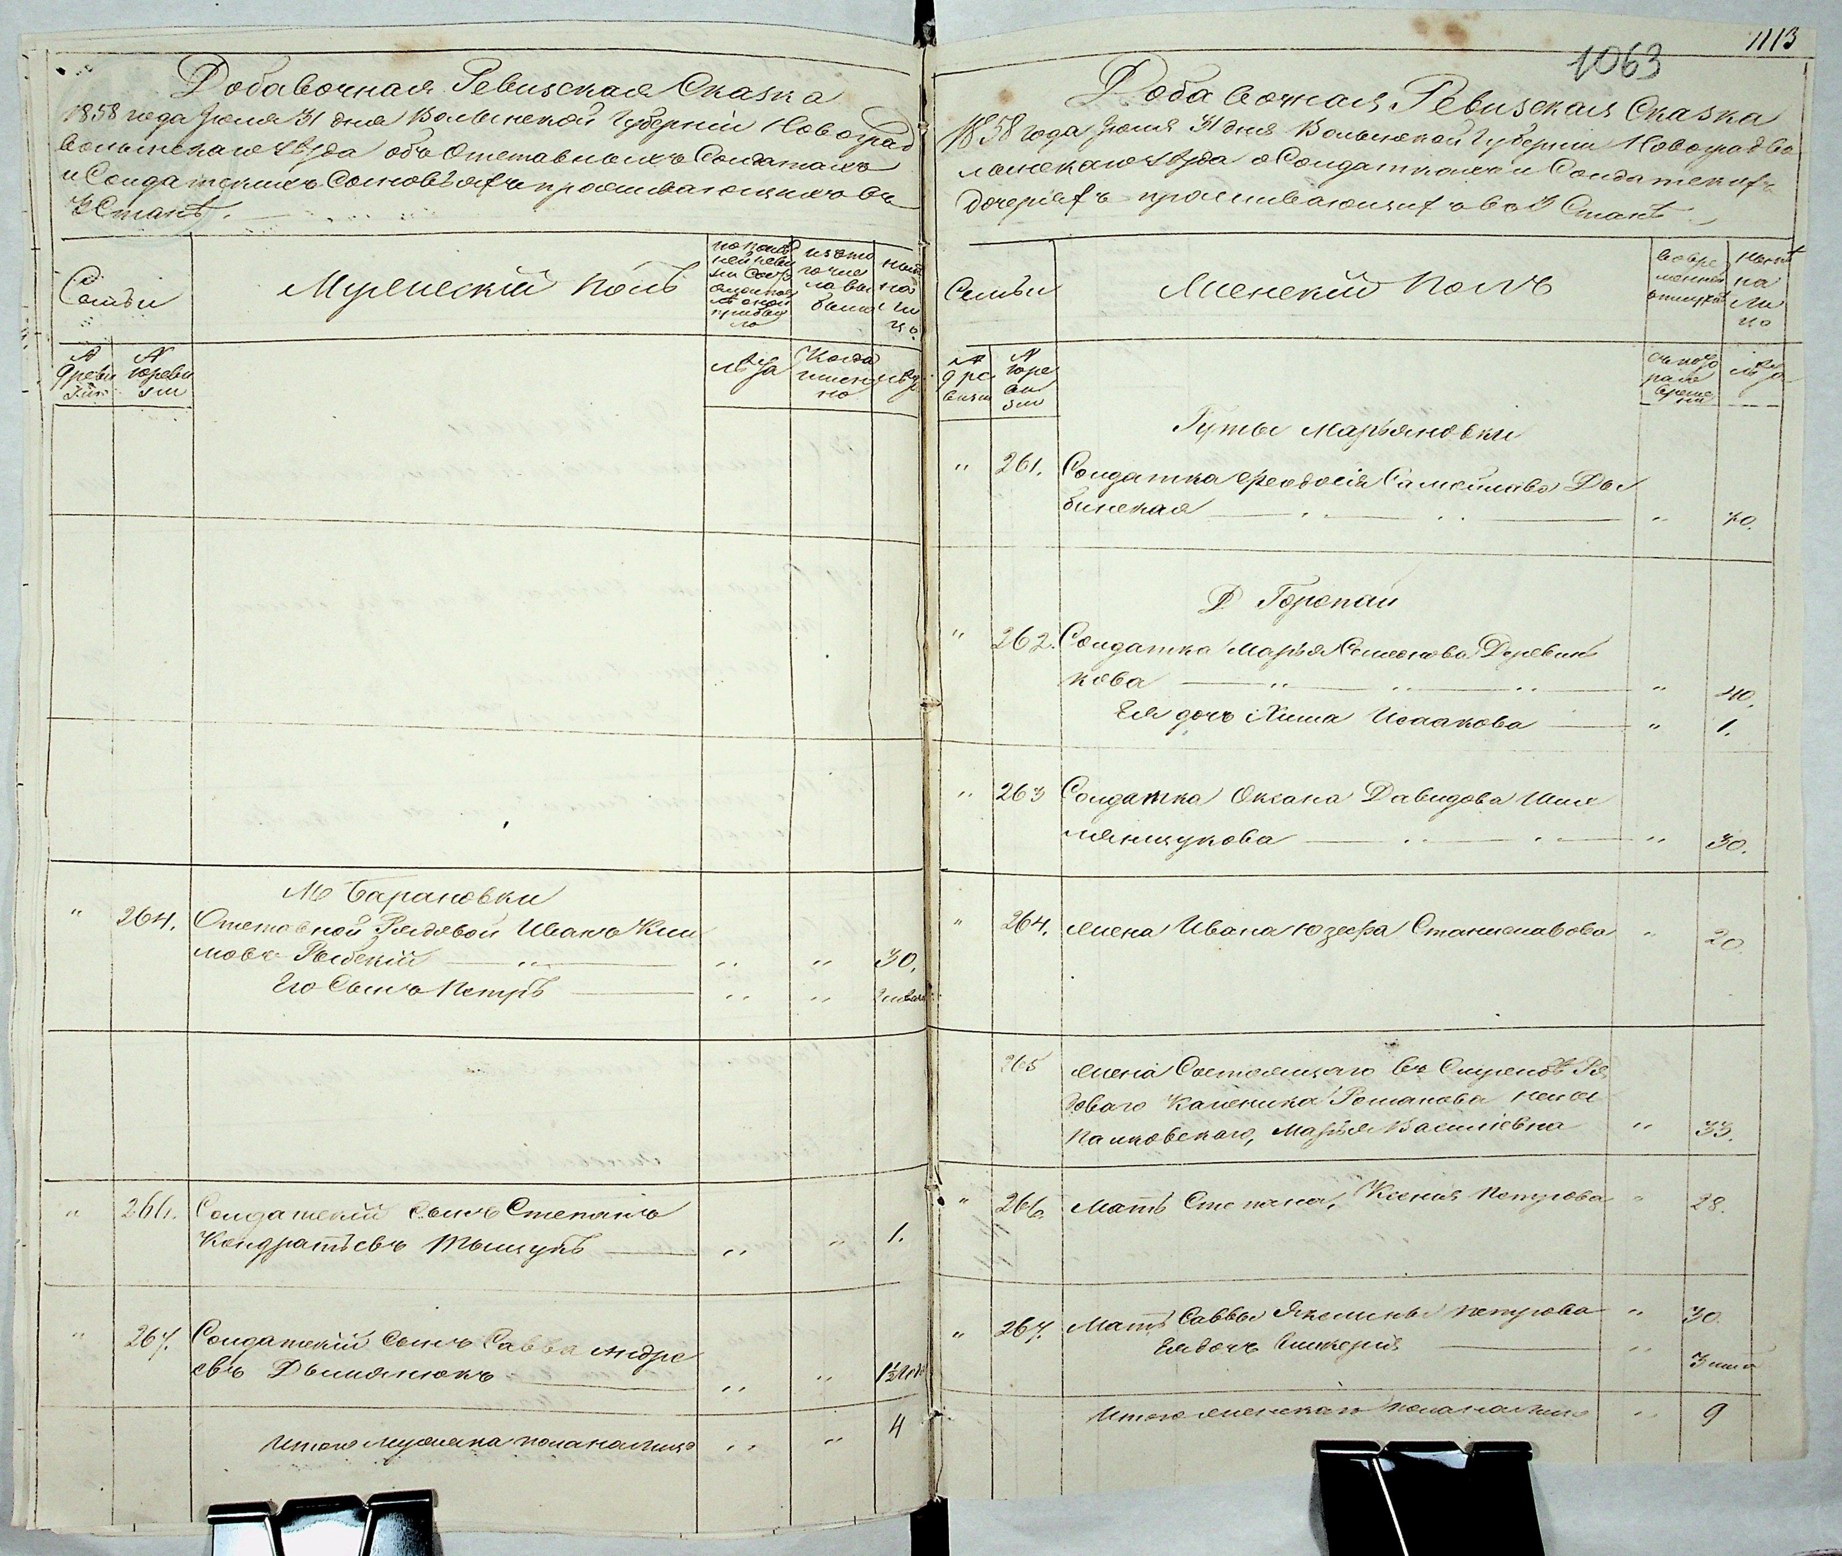 Добавочная Ревизская Сказка
1858 года Июля 31 дня Волынской Губерніи Новоград
волынскаго уѣзда объ Отставныхъ Солдатахъ
и Солдатскихъ Сыновъяхъ проживающихъ въ
Станѣ.
Семьи
Мужескій полъ
лѣта
Когда
именно
лѣта
М Барановки
" 264. Отставной Рядовой Иванъ Кли
мовъ Рыбскій " " " 30.
Его Сынъ Петръ " "
" 266. Солдатскій сынъ Степанъ
Кондратьевъ Тышукъ " " 1.
" 267. Солдатскій сынъ Савва Андре
евъ Дымянюкъ " "
Итого мужеска пола налицо " " 4
1113
1063
Добавочная Ревизская Сказка
1858 года Июля 31 дня Волынской Губерніи Новоградво
лынскаго уѣзда о Солдаткахъ и Солдатскихъ
дочеряхъ проживающихъ во Станѣ
Семьи
Женскій полъ
во вре
менной
отлучкѣ
нынѣ
на
ли
цо
съ кото
раго
време
ни
лѣта
Гуты Марьяновки
" 261. Солдатка Феодосія Самойлова Ды
бинская " 70.
Д Горопаи
" 262. Солдатка Марья Семенова Деревян
кова " 40.
Ея дочь Хима Исаакова " 1.
" 263 Солдатка Оксана Давидова Шме
лянчукова " 30.
" 264. Жена Ивана Юзефа Станиславова " 20.
265 Жена Состоящаго въ Службѣ Ря
доваго Каленика Романова
Палковскаго, Марья Василіевна " 33.
" 266. Мать Степана, Ксенія Петрова " 28.
" 267. Мать Саввы Якелина Петрова " 30.
Ея дочь Гликерія "
Итого женскаго пола налицо " 9